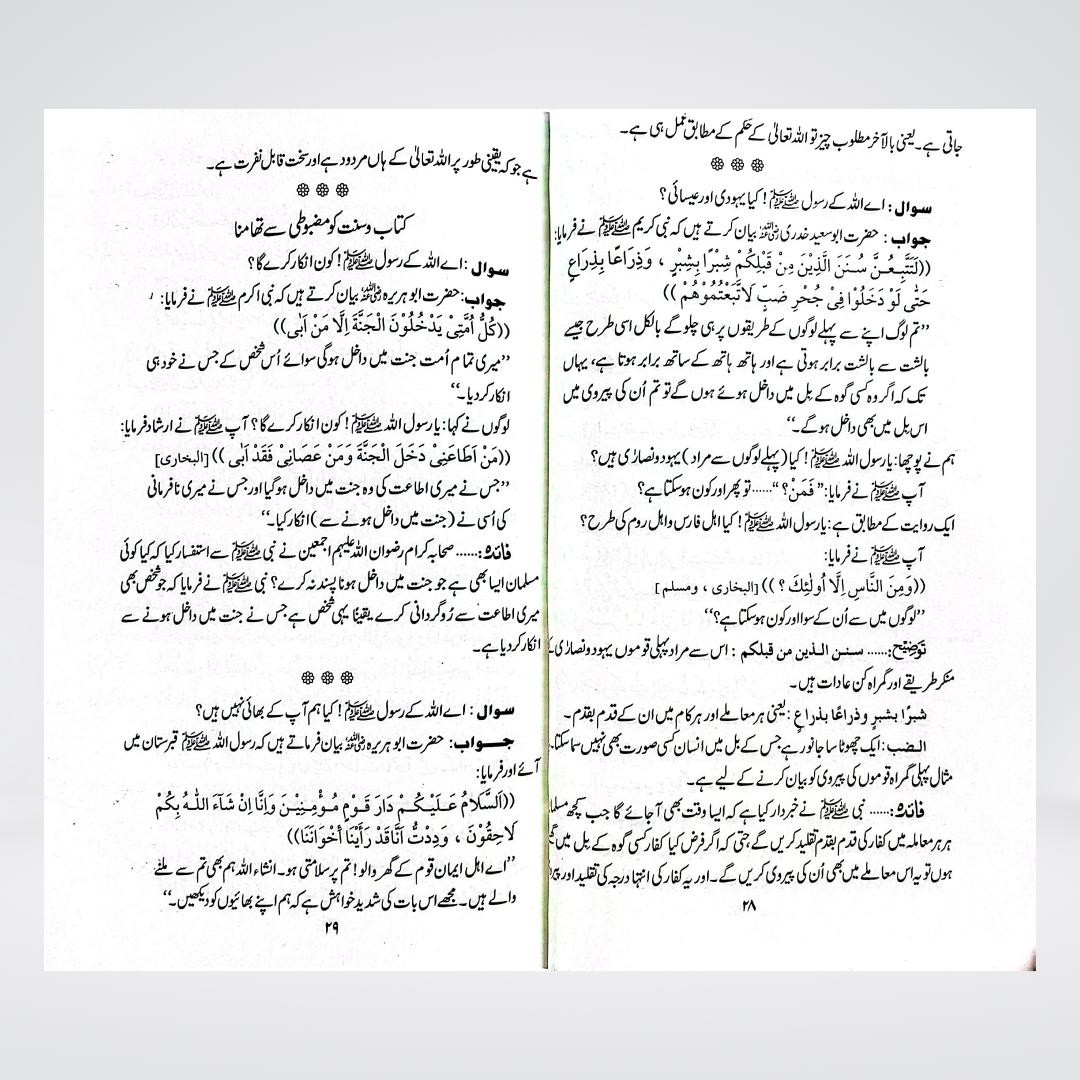 جاتی ہے۔ یعنی بالآخر مطلوب چیز تو اللہ تعالیٰ کے حکم کے مطابق عمل ہی ہے۔
❁ ❁ ❁
سوال: اے اللہ کے رسول ﷺ! کیا یہودی اور عیسائی؟
جواب: حضرت ابو سعید خدری رضی اللہ عنہ بیان کرتے ہیں کہ نبی کریم ﷺ نے فرمایا:
((لَتَتَّبِعُنَّ سُنَنَ الَّذِیْنَ مِنْ قَبْلِکُمْ شِبْرًا بِشِبْرٍ ، وَذِرَاعًا بِذِرَاعٍ
حَتّٰی لَوْ دَخَلُوْا فِیْ جُحْرِ ضَبٍّ لَا تَّبَعْتُمُوْهُمْ))
”تم لوگ اپنے سے پہلے لوگوں کے طریقوں پر ہی چلو گے بالکل اسی طرح جیسے
بالشت سے بالشت برابر ہوتی ہے اور ہاتھ ہاتھ کے ساتھ برابر ہوتا ہے، یہاں
تک کہ اگر وہ کسی گوہ کے بل میں داخل ہوئے ہوں گے تو تم اُن کی پیروی میں
اس بل میں بھی داخل ہو گے۔“
ہم نے پوچھا: یا رسول اللہ ﷺ! کیا (پہلے لوگوں سے مراد) یہود و نصاریٰ ہیں؟
آپ ﷺ نے فرمایا: ”فَمَنْ؟“...... تو پھر اور کون ہو سکتا ہے؟
ایک روایت کے مطابق ہے: یا رسول اللہ ﷺ! کیا اہل فارس و اہل روم کی طرح؟
آپ ﷺ نے فرمایا:
((وَمِنَ النَّاسِ اِلَّا اُولٰٓئِكَ ؟)) [البخاری ، ومسلم]
”لوگوں میں سے اُن کے سوا اور کون ہو سکتا ہے؟“
توضیح:...... سنن الذین من قبلکم : اس سے مراد پہلی قوموں یہود و نصاریٰ کے
منکر طریقے اور گمراہ کن عادات ہیں۔
شبرًا بشبرٍ وذراعًا بذراعٍ : یعنی ہر معاملے اور ہر کام میں ان کے قدم بقدم۔
الضب: ایک چھوٹا سا جانور ہے جس کے بل میں انسان کسی صورت بھی نہیں سما سکتا۔
مثال پہلی گمراہ قوموں کی پیروی کو بیان کرنے کے لیے ہے۔
فائدہ:...... نبی ﷺ نے خبردار کیا ہے کہ ایسا وقت بھی آ جائے گا جب کچھ
ہر ہر معاملہ میں کفار کی قدم بقدم تقلید کریں گے، حتی کہ اگر فرض کیا کفار کسی گوہ کے بل میں
ہوں تو یہ اس معاملے میں بھی اُن کی پیروی کریں گے۔ اور یہ کفار کی انتہا درجہ کی تقلید اور
۲۸
ہے جو کہ یقینی طور پر اللہ تعالیٰ کے ہاں مردود ہے اور سخت قابل نفرت ہے۔
❁ ❁ ❁
کتاب و سنت کو مضبوطی سے تھامنا
سوال: اے اللہ کے رسول ﷺ! کون انکار کرے گا؟
جواب: حضرت ابو ہریرہ رضی اللہ عنہ بیان کرتے ہیں کہ نبی اکرم ﷺ نے فرمایا:
((کُلُّ اُمَّتِیْ یَدْخُلُوْنَ الْجَنَّةَ اِلَّا مَنْ اَبٰی))
”میری تمام اُمت جنت میں داخل ہو گی سوائے اُس شخص کے جس نے خود ہی
انکار کر دیا۔“
لوگوں نے کہا: یا رسول اللہ ﷺ! کون انکار کرے گا؟ آپ ﷺ نے ارشاد فرمایا:
((مَنْ اَطَاعَنِیْ دَخَلَ الْجَنَّةَ وَمَنْ عَصَانِیْ فَقَدْ اَبٰی)) [البخاری]
”جس نے میری اطاعت کی وہ جنت میں داخل ہو گیا اور جس نے میری نافرمانی
کی اُسی نے (جنت میں داخل ہونے سے) انکار کیا۔“
فائدہ:...... صحابہ کرام رضوان اللہ علیہم اجمعین نے نبی ﷺ سے استفسار کیا کہ کیا کوئی
مسلمان ایسا بھی ہے جو جنت میں داخل ہونا پسند نہ کرے؟ نبی ﷺ نے فرمایا کہ جو شخص بھی
میری اطاعت سے رُوگردانی کرے یقیناً یہی شخص ہے جس نے جنت میں داخل ہونے سے
انکار کر دیا ہے۔
❁ ❁ ❁
سوال: اے اللہ کے رسول ﷺ! کیا ہم آپ کے بھائی نہیں ہیں؟
جواب: حضرت ابو ہریرہ رضی اللہ عنہ بیان فرماتے ہیں کہ رسول اللہ ﷺ قبرستان میں
آئے اور فرمایا:
((اَلسَّلَامُ عَلَیْکُمْ دَارَ قَوْمٍ مُؤْمِنِیْنَ وَاِنَّا اِنْ شَآءَ اللّٰهُ بِکُمْ
لَاحِقُوْنَ ، وَدِدْتُّ اَنَّا قَدْ رَأَیْنَا أَخْوَانَنَا))
”اے اہل ایمان قوم کے گھر والو! تم پر سلامتی ہو۔ انشاء اللہ ہم بھی تم سے ملنے
والے ہیں۔ مجھے اس بات کی شدید خواہش ہے کہ ہم اپنے بھائیوں کو دیکھیں۔“
۲۹